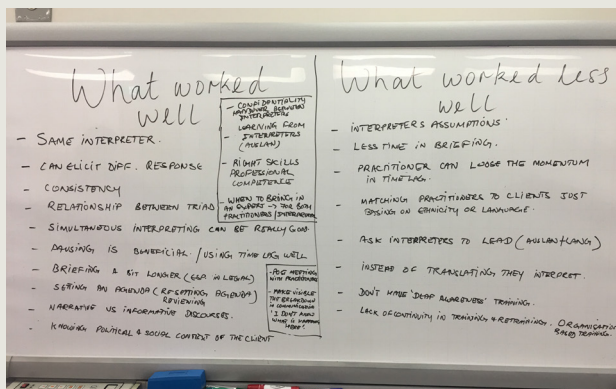 What worked
well
- SAME INTERPRETER.
- CAN ELICIT DIFF. RESPONSE
- CONSISTENCY
- RELATIONSHIP BETWEEN TRIAD
- SIMULTANEOUS INTERPRETING CAN BE REALLY GOOD.
- PAUSING IS BENEFICIAL / USING TIME LAG WELL
- BRIEFING A BIT LONGER (ESP IN LEGAL)
- SETTING AN AGENDA (RESETTING AGENDA)
REVIEWING
- NARRATIVE VS INFORMATIVE DISCOURSES.
- KNOWING POLITICAL & SOCIAL CONTEXT OF THE CLIENT
- CONFIDENTIALITY
HANDOVER BETWEEN
INTERPRETERS
- LEARNING FROM
INTERPRETERS
(AUSLAN)
- RIGHT SKILLS
PROFESSIONAL
COMPETENCE
- WHEN TO BRING IN
AN EXPERT → FOR BOTH
PRACTITIONERS/INTERPRETER
- POST MEETING
WITH PRACTITIONER
- MAKE VISIBLE
THE BREAKDOWN
IN COMMUNICATION
'I DON'T KNOW
WHAT IS HAPPENING
HERE'.
What worked less
well
- INTERPRETERS ASSUMPTIONS
- LESS TIME IN BRIEFING.
- PRACTITIONER CAN LOOSE THE MOMENTUM
IN TIME LAG.
- MATCHING PRACTITIONERS TO CLIENTS JUST
BASING ON ETHNICITY OR LANGUAGE.
- ASK INTERPRETERS TO LEAD (AUSLAN + LANG)
- INSTEAD OF TRANSLATING THEY INTERPRET.
- DON'T HAVE 'DEAF AWARENESS' TRAINING.
- LACK OF CONTINUITY IN TRAINING & RETRAINING. ORGANISATION
BASED TRAINING.